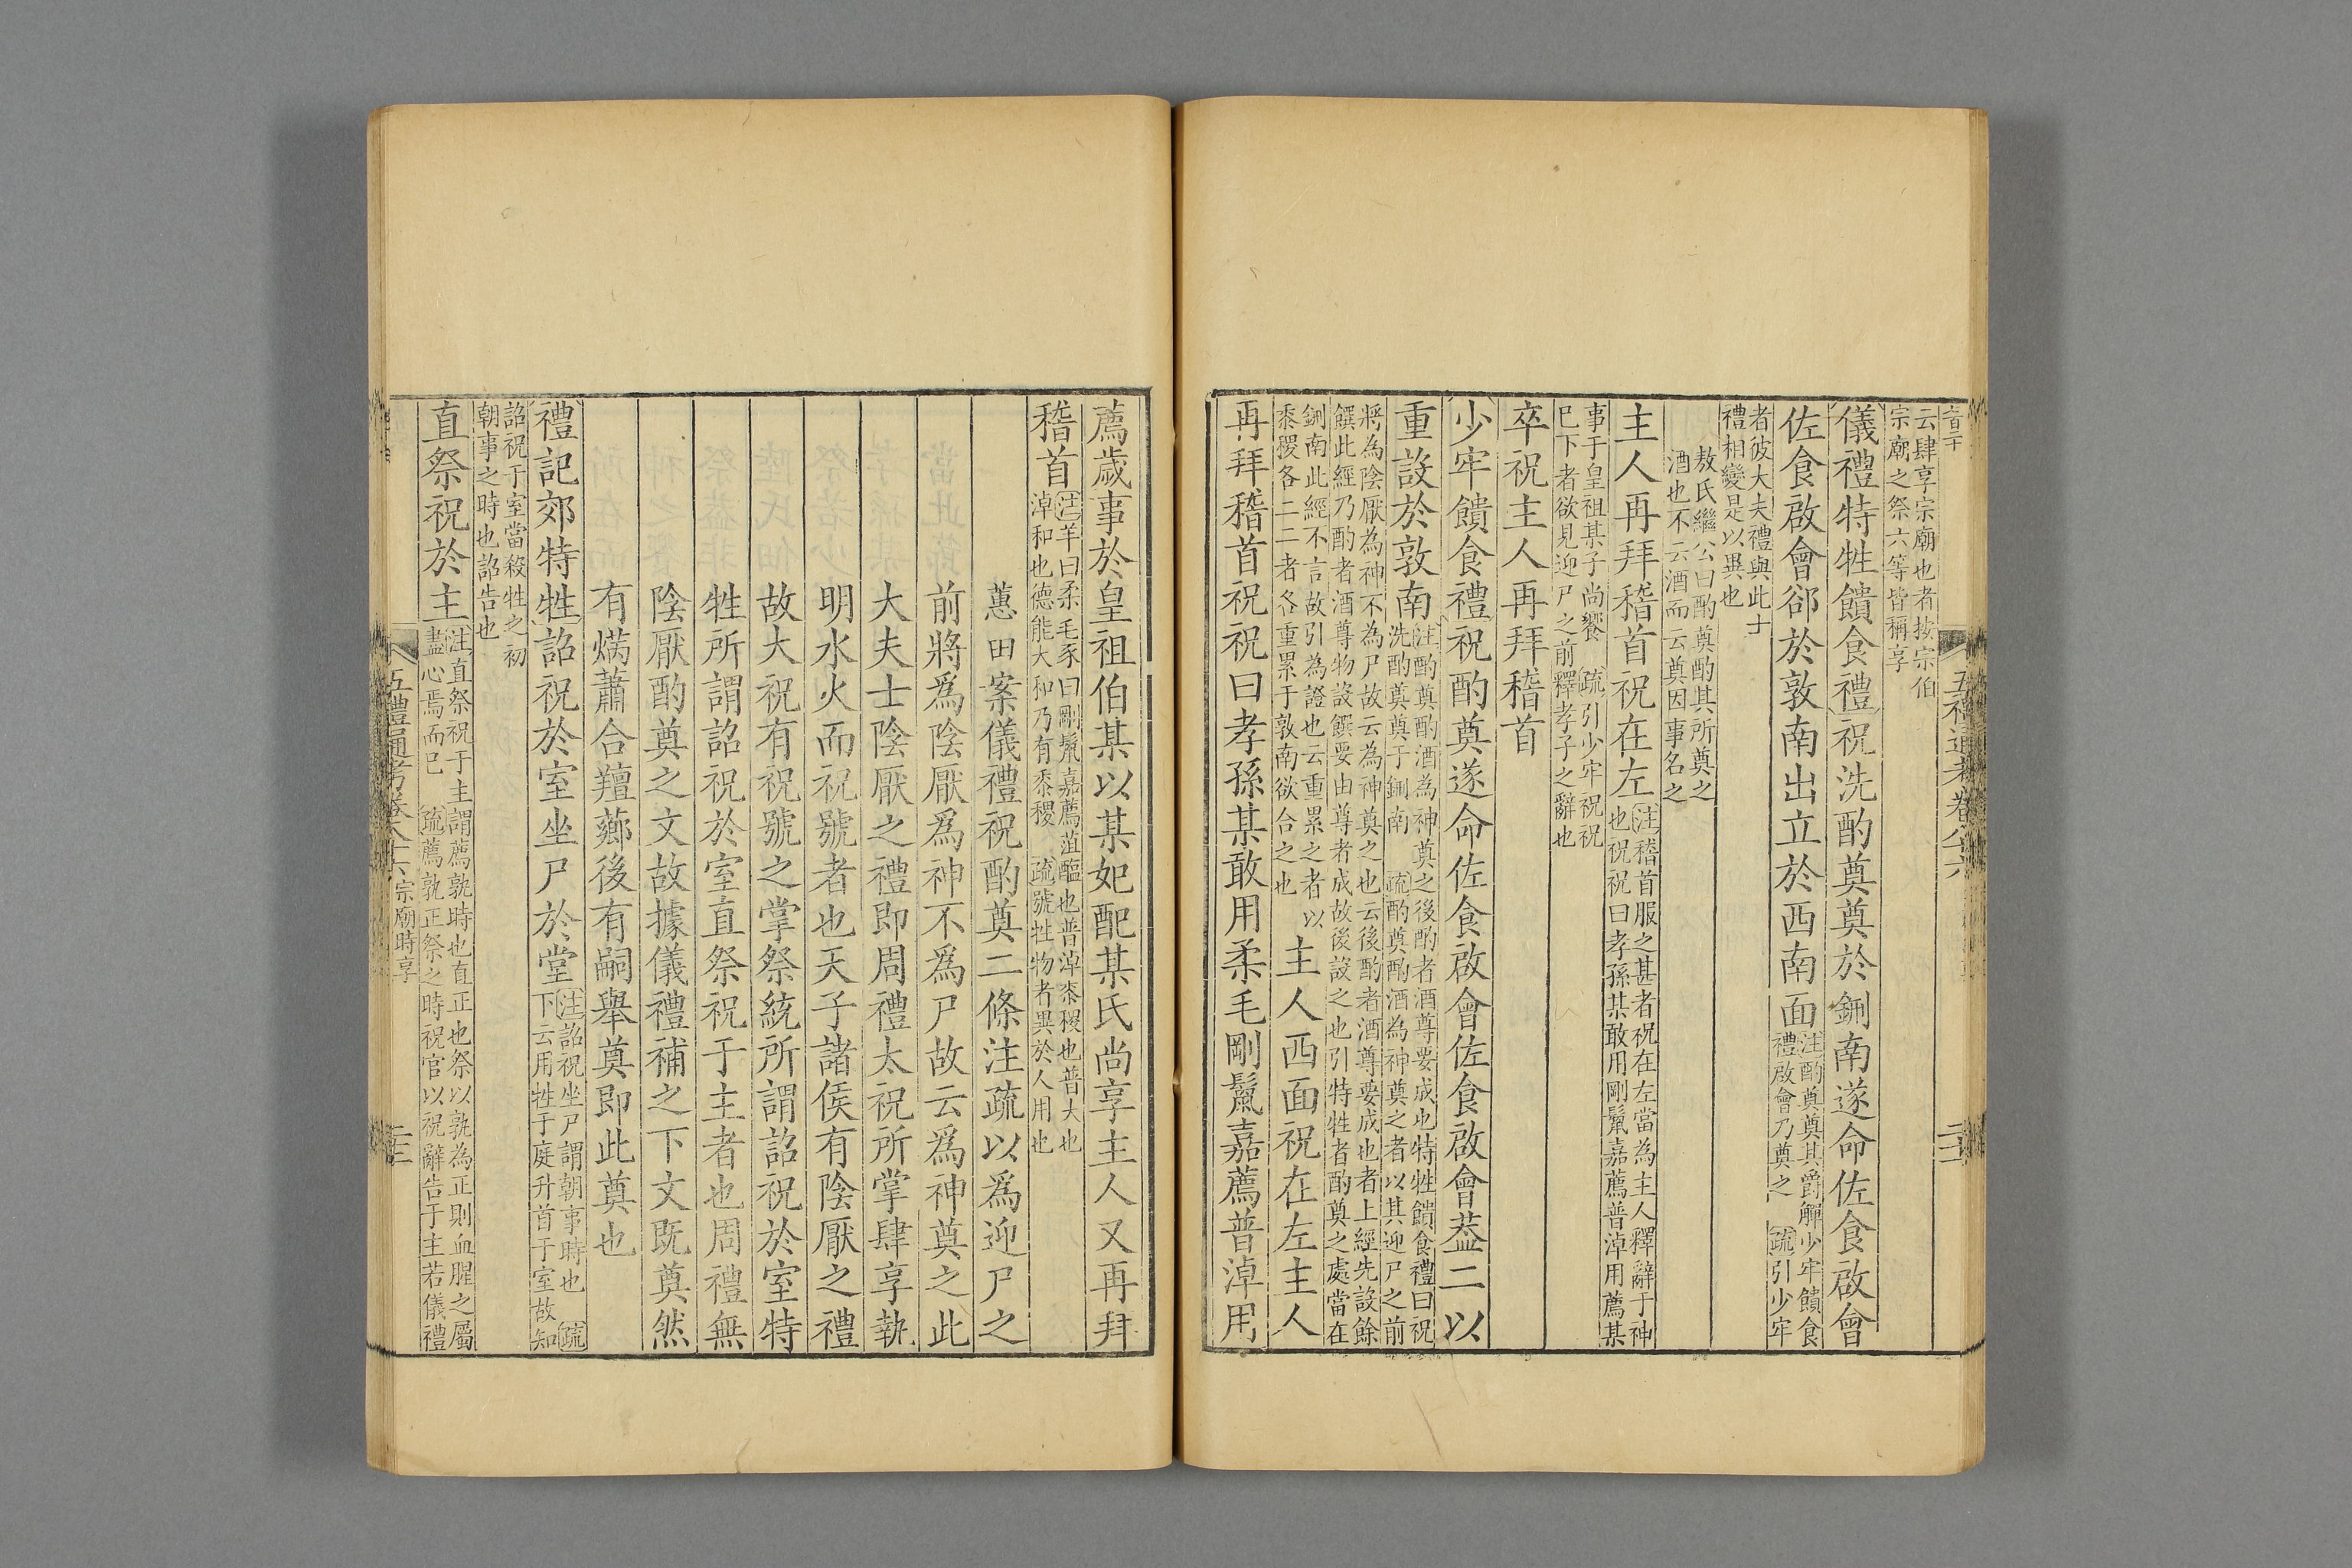 云肆享宗廟也者按宗伯
宗廟之祭六等皆稱享
儀禮特牲饋食禮祝洗酌奠奠於鉶南遂命佐食啟會
佐食啟會郤於敦南出立於西南面
注酌奠奠其爵觶少牢饋食
禮啟會乃奠之 疏引少牢
者彼大夫禮與此士
禮相變是以異也
敖氏繼公曰酌奠酌其所奠之
酒也不云酒而云奠因事名之
主人再拜稽首祝在左
注稽首服之甚者祝在左當為主人釋辭于神
也祝祝曰孝孫某敢用剛鬣嘉薦普淖用薦某
事于皇祖某子尚饗 疏引少牢祝祝
已下者欲見迎尸之前釋孝子之辭也
卒祝主人再拜稽首
少牢饋食禮祝酌奠遂命佐食啟會佐食啟會葢二以
重設於敦南
注酌奠酌酒為神奠之後酌者酒尊要成也特牲饋食禮曰祝
洗酌奠奠于鉶南 疏酌奠酌酒為神奠之者以其迎尸之前
將為陰厭為神不為尸故云為神奠之也云後酌者酒尊要成也者上經先設餘
饌此經乃酌者酒尊物設饌要由尊者成故後設之也引特牲者酌奠之處當在
鉶南此經不言故引為證也云重累之者以
黍稷各二二者各重累于敦南欲合之也
主人西面祝在左主人
再拜稽首祝祝曰孝孫某敢用柔毛剛鬣嘉薦普淖用
薦歲事於皇祖伯某以某妃配某氏尚享主人又再拜
稽首
注羊曰柔毛豕曰剛鬣嘉薦菹醢也普淖黍稷也普大也
淖和也德能大和乃有黍稷 疏號牲物者異於人用也
蕙田案儀禮祝酌奠二條注疏以爲迎尸之
前將爲陰厭爲神不爲尸故云爲神奠之此
大夫士陰厭之禮即周禮太祝所掌肆享執
明水火而祝號者也天子諸侯有陰厭之禮
故大祝有祝號之掌祭統所謂詔祝於室特
牲所謂詔祝於室直祭祝于主者也周禮無
陰厭酌奠之文故據儀禮補之下文既奠然
有焫蕭合羶薌後有嗣舉奠即此奠也
禮記郊特牲詔祝於室坐尸於堂
注詔祝坐尸謂朝事時也 疏
下云用牲于庭升首于室故知
詔祝于室當殺牲之初
朝事之時也詔告也
直祭祝於主
注直祭祝于主謂薦孰時也直正也祭以孰為正則血腥之屬
盡心焉而已 疏薦孰正祭之時祝官以祝辭告于主若儀禮
五禮通考卷八十六宗廟時享